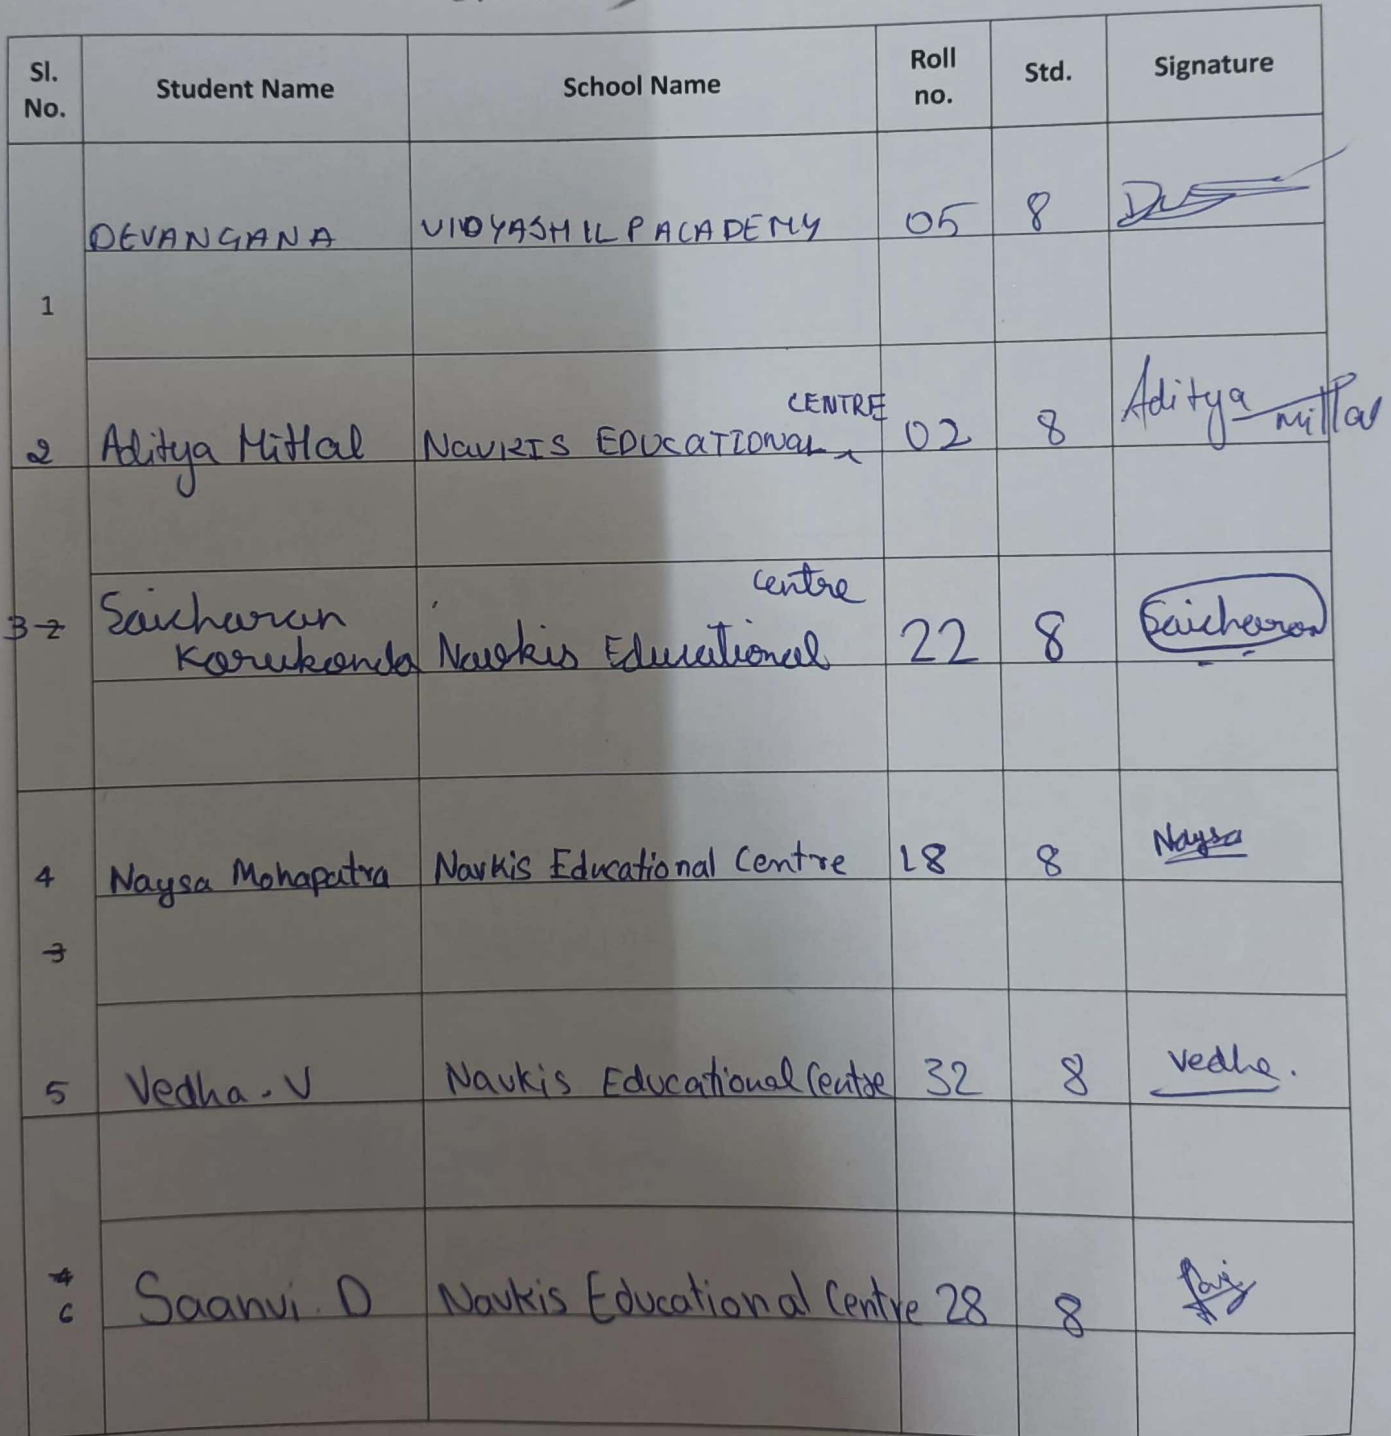 Sl. No. Student Name School Name Roll no. Std. Signature
1 DEVANGANA VIDYASHILP ACADEMY 05 8
2 Aditya Mittal NAVKIS EDUCATIONAL CENTRE 02 8 Aditya Mittal
3 2 Saicharan Karukonda Navkis Educational centre 22 8 Saicharan
4 Naysa Mohapatra Navkis Educational Centre 18 8 Naysa
3
5 Vedha. V Navkis Educational Centre 32 8 Vedha.
4
6 Saanvi. D Navkis Educational Centre 28 8